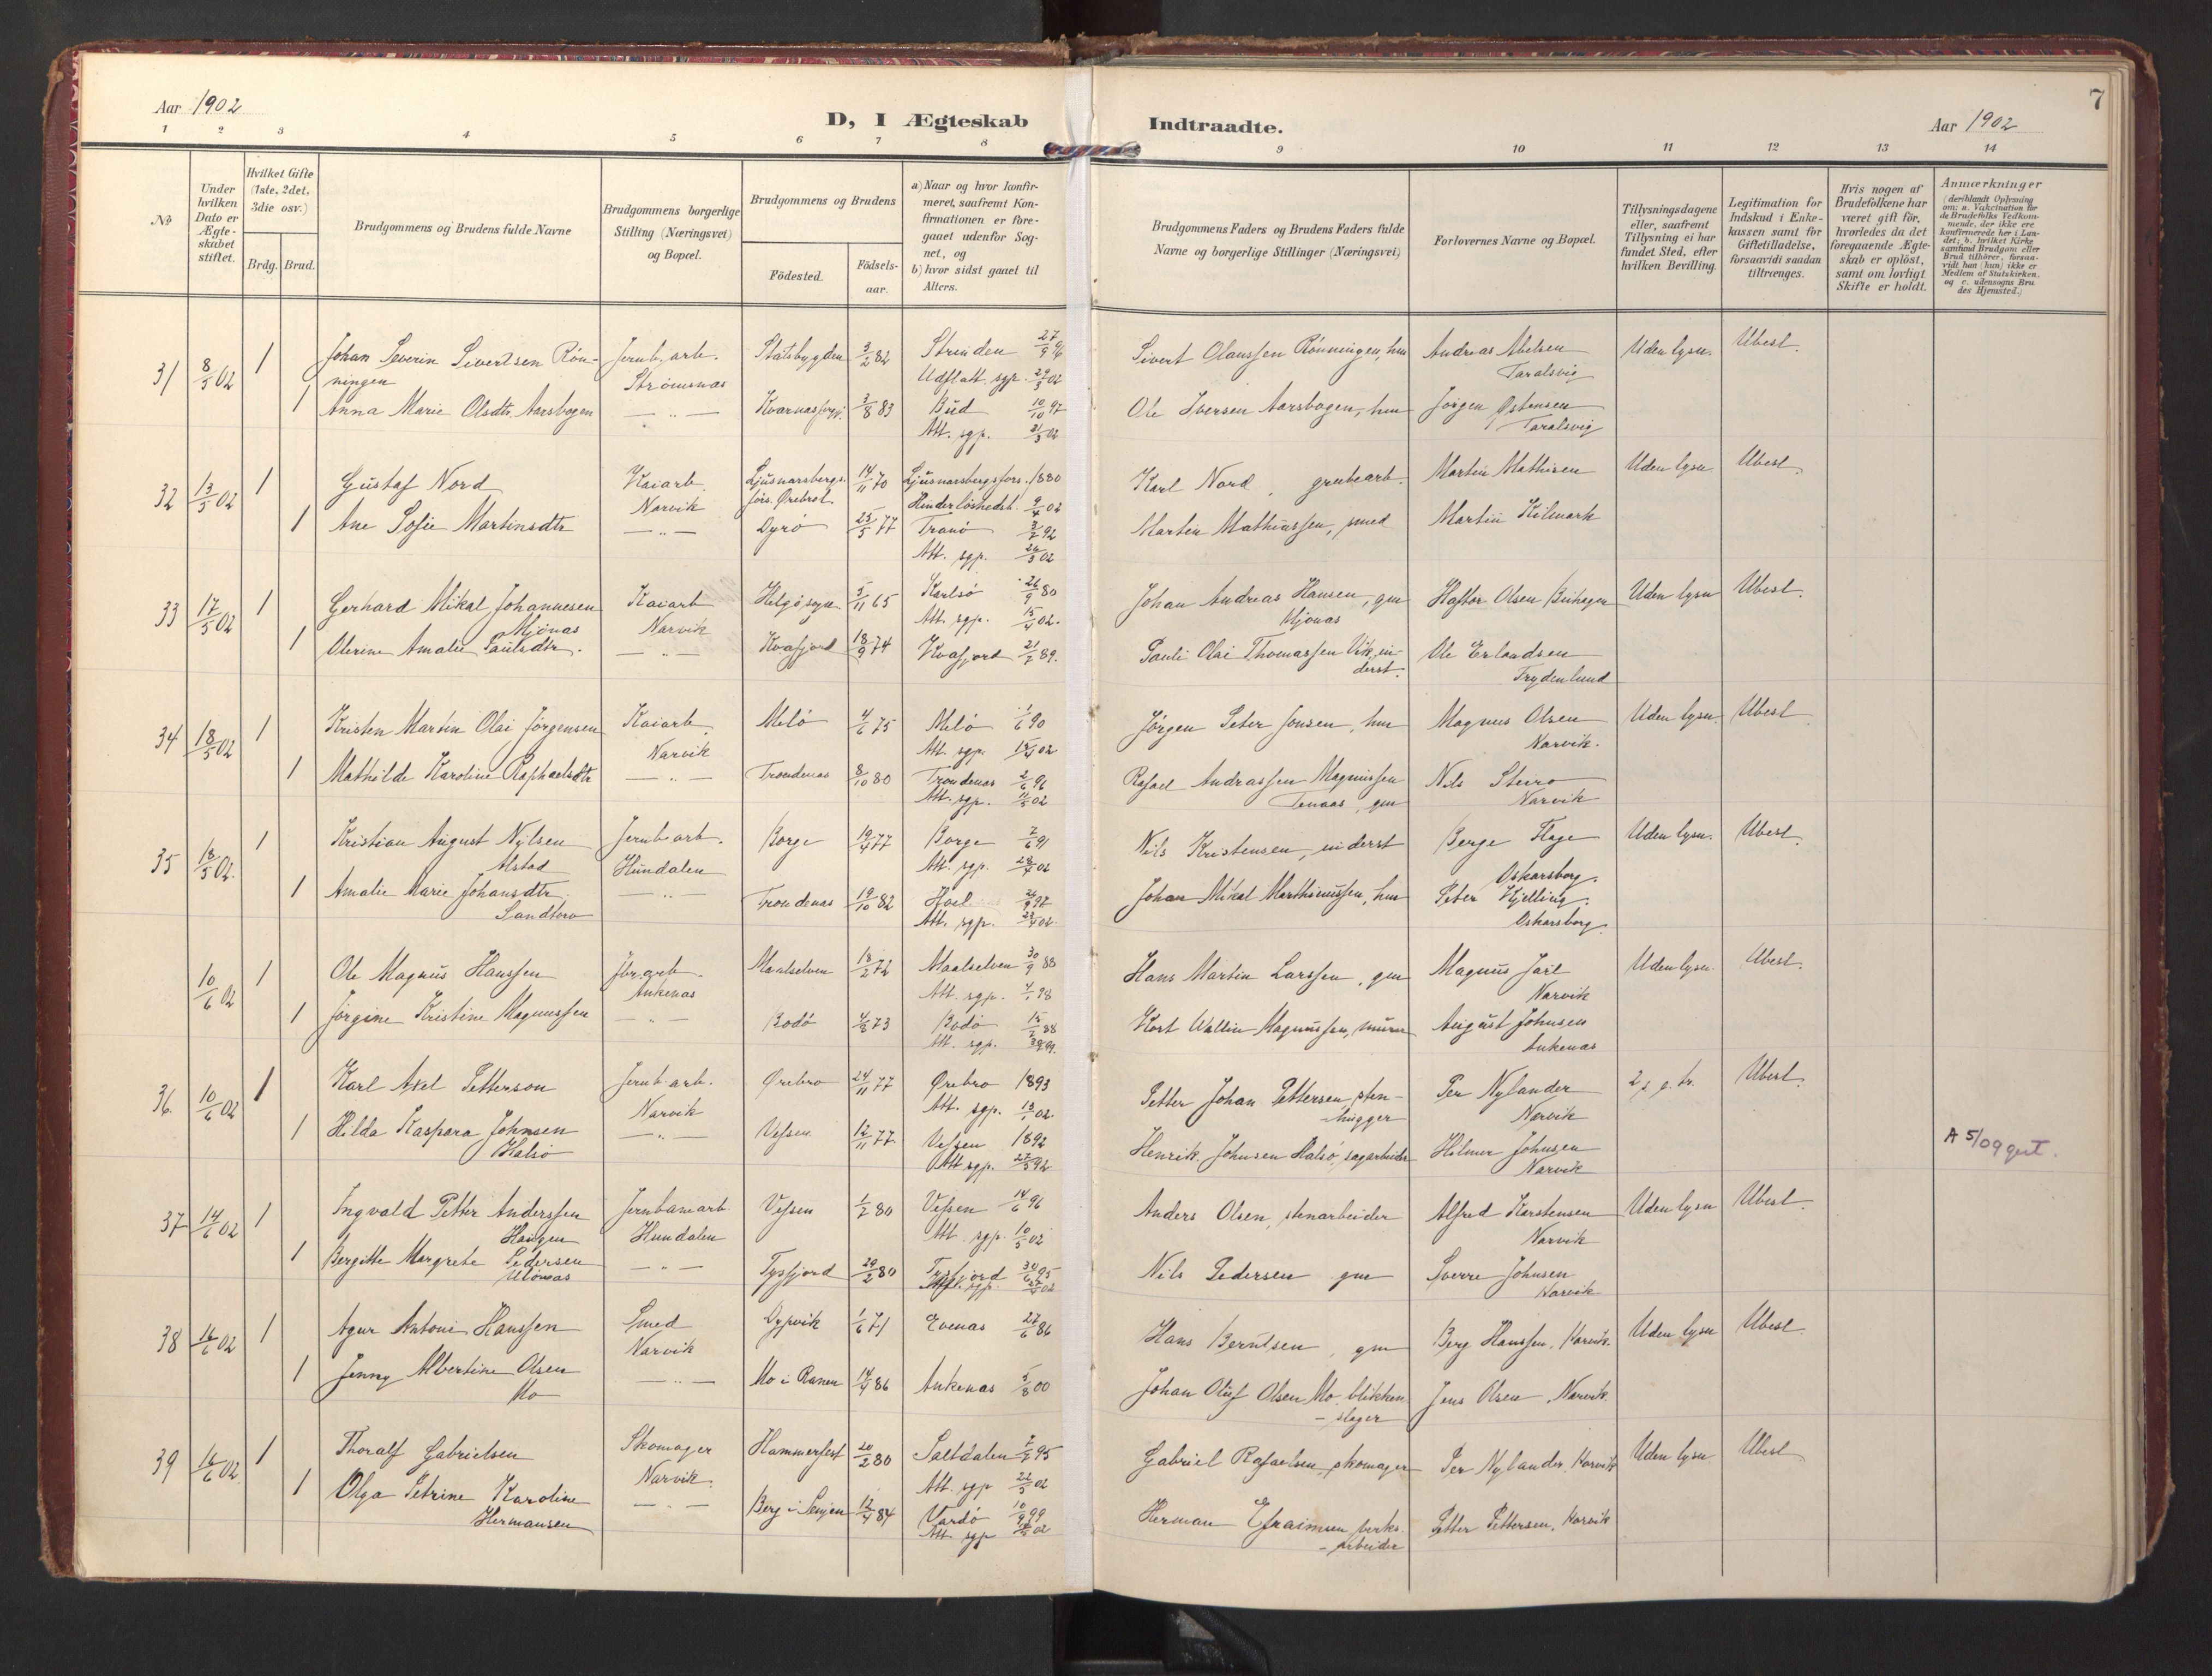 Aar 1902
D, I Ægteskab
Indtraadte.
Aar 1902
7
1 2 3 4 5 6 7 8 9 10 11 12 13 14
No
Under hvilken Dato er Ægteskabet stiftet.
Hvilket Gifte (1ste, 2det, 3die osv.)
Brdg. Brud.
Brudgommens og Brudens fulde Navne
Brudgommens borgerlige Stilling (Næringsvei) og Bopæl.
Brudgommens og Brudens
Fødested.
Fødselsaar.
a) Naar og hvor konfirmeret, saafremt Konfirmationen er foregaaet udenfor Sognet, og
b) hvor sidst gaaet til Alters.
Brudgommens Faders og Brudens Faders fulde Navne og borgerlige Stillinger (Næringsvei)
Forlovernes Navne og Bopæl.
Tillysningsdagene eller, saafremt Tillysning ei har fundet Sted, efter hvilken Bevilling.
Legitimation for Indskud i Enkekassen samt for Giftetilladelse, forsaavidt saadan tiltrænges.
Hvis nogen af Brudefolkene har været gift før, hvorledes da det foregaaende Ægteskab er opløst, samt om lovligt Skifte er holdt.
Anmærkninger (deriblandt Oplysning om: a. Vakcination for de Brudefolks Vedkommende, der ikke ere konfirmerede her i Landet; b. hvilket Kirkesamfund Brudgom eller Brud tilhører, forsaavidt han (hun) ikke er Medlem af Statskirken, og c. udensogns Brudes Hjemsted.)
31 8/5 02 1 Johan Severin Sivertsen Rønningen Jernb.arb. Strømsnas Statsbygden 3/2 82 Strinden 27/9 96 Sivert Olaussen Rønningen, hm Andreas Abelsen Taralsvig Uden lysn. Ubest.
1 Anna Marie Olsdtr. Aarsbogen — " — 3/8 83 Bud 10/10 97 Att. sgp. 21/3 02 Ole Iversen Aarsbogen, hm Jørgen Østensen Taralsvig
32 13/5 02 1 Gustaf Nord Kaiarb. Narvik Ljusnarsbergs fors. Ørebrol. 14/11 70 Ljusnarsbergs fors. 1880 Karl Nord, grubearb. Martin Mathisen Uden lysn Ubest.
1 Ane Sofie Martinsdtr — " — Dyrø 25/5 77 Tranø 3/7 92 Att. sgp. 26/3 02 Martin Mathiassen, smed Martin Kilmark
33 17/5 02 1 Gerhard Mikal Johannesen Mjønas Kaiarb Narvik 5/11 65 Karlsø 26/9 80 Att. sgp. 15/4 02. Johan Andreas Hansen, gm Mjønas Haftor Olsen Uden lysn Ubest.
1 Olerine Amalie Paulsdtr. — " — Kvafjord 18/9 74 Kvafjord 21/7 89. Pauli Olai Thomassen Vik, inderst. Ole Erlandsen Frydenlund
34 18/5 02 1 Kristen Martin Olai Jørgensen Kaiarb. Narvik Melø 4/6 75 Melø 1/6 90 Att. sgp. 15/4 02 Jørgen Peter Jonsen, hm Magnus Olsen Narvik. Uden lysn. Ubest.
1 Mathilde Karoline Raphaelsdtr — " — Trondenas 8/10 80 Trondenas 2/6 96 Att. sgp. 11/5 02 Rafael Andrassen Magnussen Tenaas, gm Nils Steiro Narvik
35 18/5 02. 1 Kristian August Nilsen Alstad Jernb.arb. Hundalen Borge 19/4 77 Borge 7/6 91 Att. sgp. 28/4 02 Nils Kristensen, inderst Berge Flage Oskarsborg. Uden lysn. Ubest.
1 Amalie Marie Johansdtr. Sandtorv — " — Trondenas 19/10 82 Hol 26/9 97 Att. sgp. 28/4 02. Johan Mikal Marthinussen, hm Peter Kjelling. Oskarsborg.
10/6 02 1 Ole Magnus Hanssen Jbr.arb. Ankenas Maalselven 18/2 72 Maalselven 30/9 88 Att. sgp. Hans Martin Larssen, gm Magnus Jarl Narvik Uden lysn. Ubest.
1 Jørgine Kristine Magnussen — " — Bodø 73 Bodø 15/7 88 Att. sgp. Kort Wallin Magnussen, murer August Johnsen Ankenas
36. 10/6 02 1 Karl Axel Petterson Jernb.arb. Narvik Ørebro 24/11 77 Ørebro 1893 Att. sgp. Petter Johan Pettersen, stenhugger Per Nylander Narvik 2 s. e. tr. Ubest.
1 Hilda Kaspara Johnsen Halsø — " — Vefsen 12/11 77. Vefsen 1892 Att sgp. 27/5 92 Henrik Johnsen Halsø, sagarbeider Hilmer Johnsen Narvik A 5/09 gert.
37 14/6 02 1 Ingvald Petter Anderssen Haugen Jernbanearb. Hundalen Vefsen 1/2 80 Vefsen 14/6 96 Att. sgp. 10/5 02 Anders Olsen, stenarbeider Alfred Karstensen Narvik Uden lysn Ubest.
1 Bergitte Margrete Pedersen — " — Tysfjord 29/2 80 Tysfjord 30/6 95 Nils Pedersen gm Sverre Johnsen Narvik
38 14/6 02 1 Agur Antoni Hanssen Smed Narvik Dypvik 1/6 71 Evenas 27/6 86 Hans Berntsen, gm Berg Hanssen, Narvik. Uden lysn Ubest.
1 Jenny Albertine Olsen Mo — " — Mo i Ranen 14/4 86 Ankenas 5/8 00 Johan Oluf Olsen Mo, blikkenslager Jens Olsen, Narvik.
39 14/6 02. 1 Thoralf Gabrielsen Skomager Narvik. Hammerfest 20/2 80 Saltdalen 95 Att. sgp 22/5 02 Gabriel Rafaelsen, skomager Per Nylander, Narvik Uden lysn. Ubest.
1 Olga Petrine Karoline Hermansen — " — Berg i Senjen 12/4 84 Vardø 10/9 99 Att. sgp 02 Herman Efraimsen, verksarbeider Petter Pettersen, Narvik